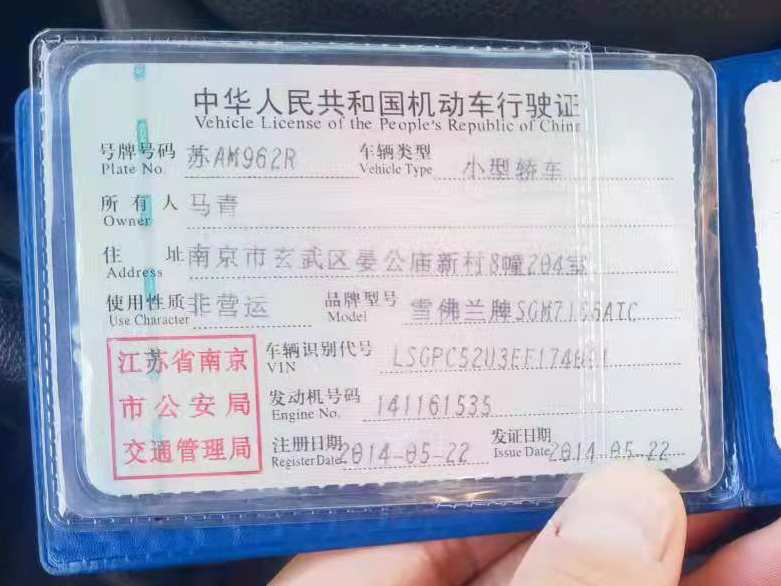 中华人民共和国机动车行驶证
Vehicle License of the People's Republic of China
号牌号码 苏AM962R 车辆类型 小型轿车
Plate No. Vehicle Type
所有人 马青
Owner
住址 南京市玄武区晏公庙新村8幢204室
Address
使用性质 非营运 品牌型号 雪佛兰牌
Use Character Model
江苏省南京
市公安局
交通管理局
车辆识别代号
VIN
发动机号码 141161535
Engine No.
注册日期 2014-05-22 发证日期 2014-05-22
Register Date Issue Date